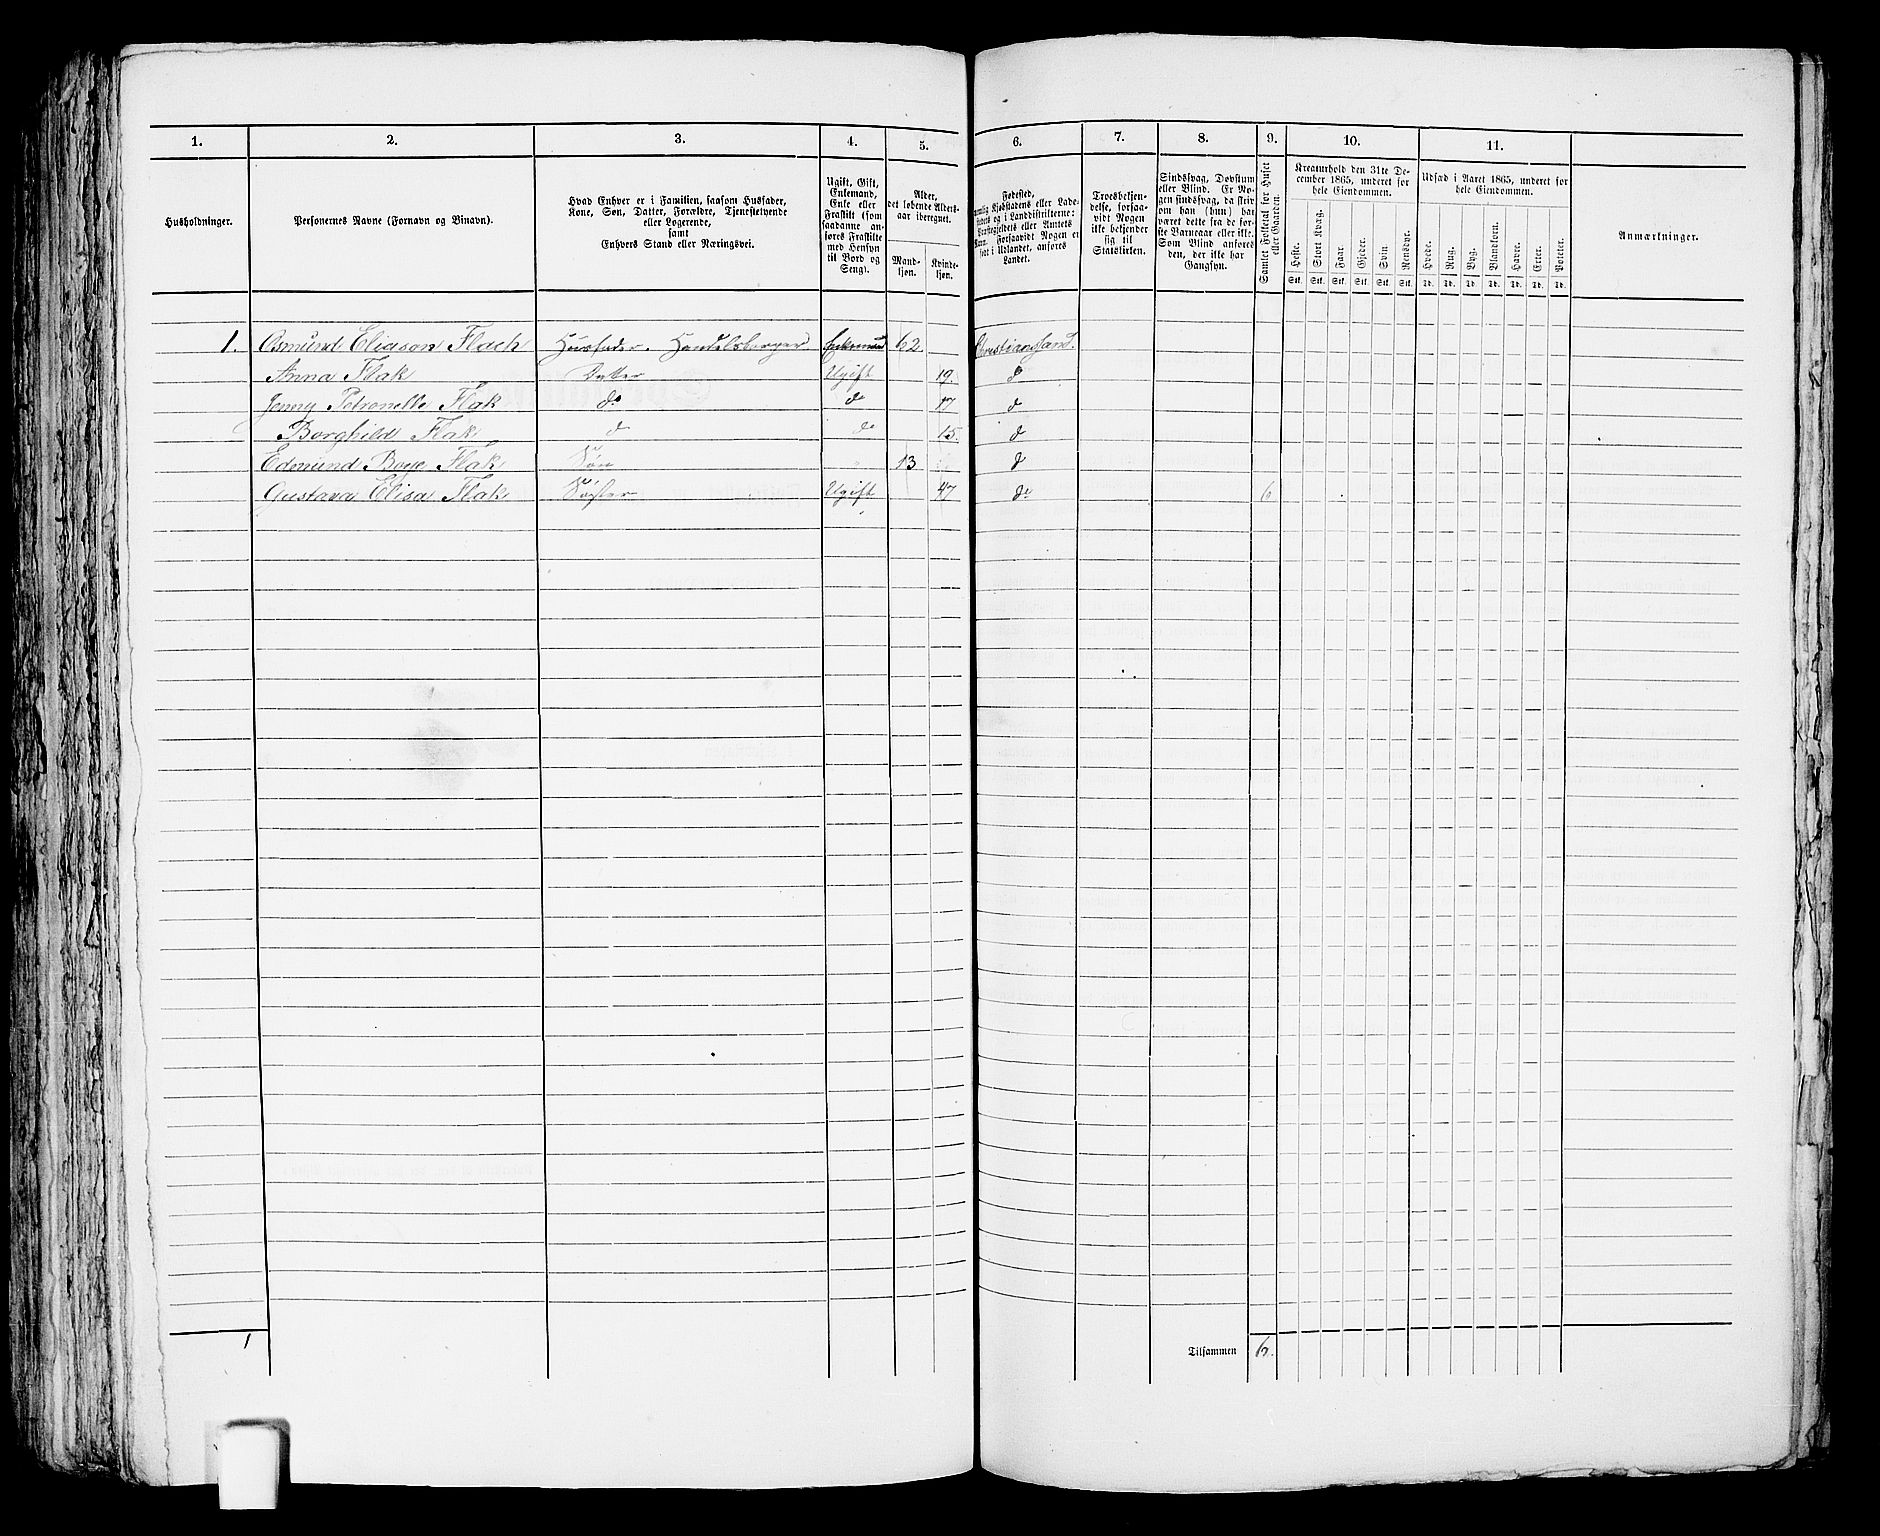 1. 2. 3. 4. 5. 6. 7. 8. 9. 10. 11.
Husholdninger.
Personernes Navne (Fornavn og Binavn).
Hvad Enhver er i Familien, saasom Husfader,
Kone, Søn, Datter, Forældre, Tjenestetyende
eller Logerende,
samt
Enhvers Stand eller Næringsvei.
Ugift, Gift,
Enkemand,
Enke eller
Fraskilt (som
saadanne an-
føres Fraskilte
med Hensyn
til Bord og
Seng).
Alder,
det løbende Alders-
aar iberegnet.
Mand- Kvinde-
kjøn. kjøn.
Fødested,
Landet.
Troesbekjen-
delse, forsaa-
vidt Nogen
ikke bekjender
sig til
Statskirken.
Sindssvag, Døvstum
eller Blind. Er No-
gen sindssvag, da skriv
om han (hun) har
været dette fra de før-
ste Barneaar eller ikke.
Som Blind anføres
den, der ikke har
Gangsyn.
Samlet Folketal for Huset
eller Gaarden.
Kreaturhold den 31te De-
cember 1865, underet for
hele Eiendommen.
Heste. Stort Kvæg. Faar. Gjeder. Svin Rensdyr.
Stk. Stk. Stk. Stk. Stk. Stk.
Udsæd i Aaret 1865, underet for
hele Eiendommen.
Hvede. Rug. Byg. Blandkorn. Havre. Erter. Poteter.
Td. Td. Td. Td. Td. Td. Td.
Anmærkninger.
1. Osmund Eliason Flach Husfader. Handelsborger Enkemand 62. Christianssand.
Anna Flak Datter Ugift 19. do
Jenny Petronelle Flak do do 17 do
Borghild Flak do do 15. do
Edmund Boye Flak Søn 13 do
Gustava Elisa Flak Søster Ugift 47 do 6
1 Tilsammen 6.